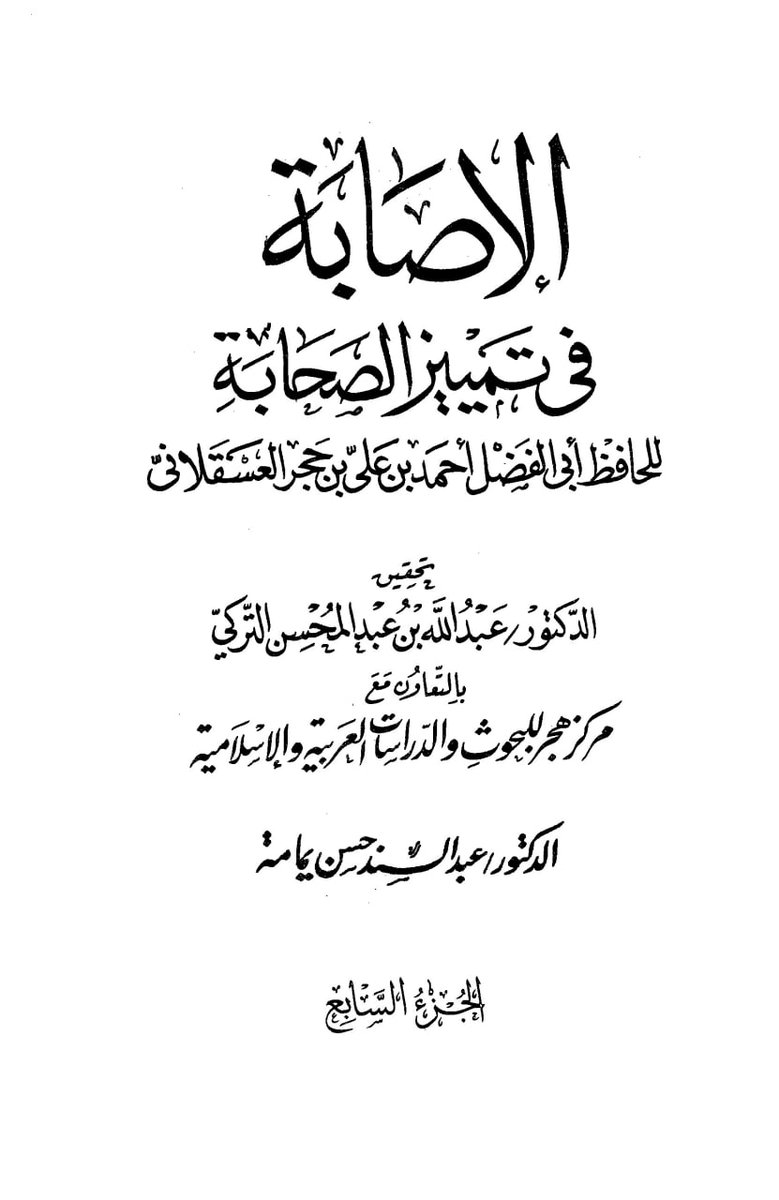 الإصَابَة
فى تمَيِيز الصَّحَابَةِ
للحافظ أبى الفَضْل أحمَد بن عَلىّ بن حَجر العَسْقَلانىّ
تحقيق
الدّكتور/ عَبْدُ اللّه بْنُ عَبْد المُحْسِن التّركيّ
بالتّعَاوُن مَعَ
مركز هجر للبحوثِ والدّراسَات العَربية والإسْلَامية
الدكتور/ عبد السند حسن يمامة
الجُزءُ السَّابِع